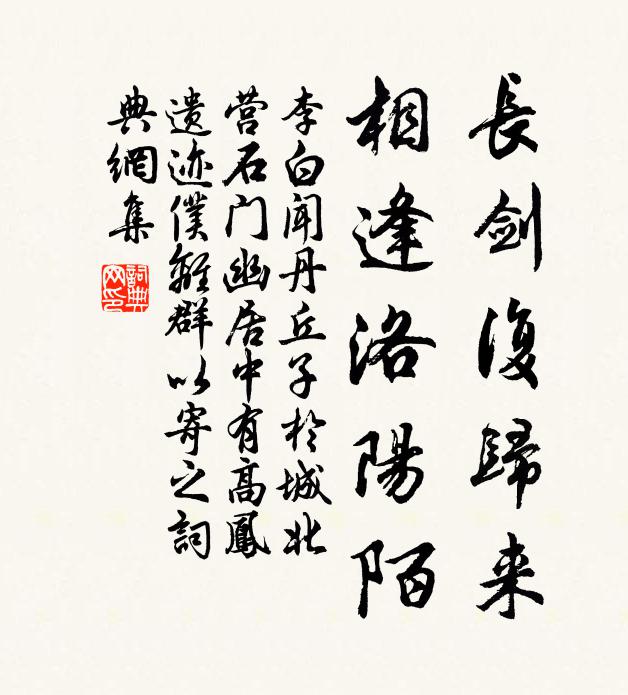 長剑復歸来
相逢洛陽陌
李白闻丹丘子於城北
营石门幽居中有高鳳
遗迹僕離群以寄之詞
典網集
詞典网印